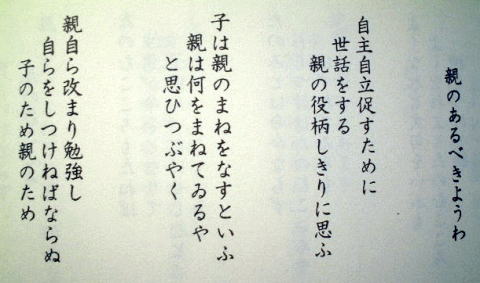 親のあるべきようわ
自主自立促すために
世話をする
親の役柄しきりに思ふ
子は親のまねをなすといふ
親は何をまねてゐるや
と思ひつぶやく
親自ら改まり勉強し
自らをしつけねばならぬ
子のため親のため